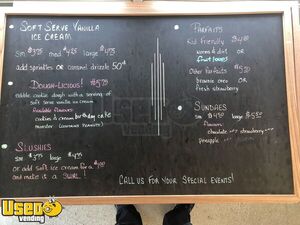 SOFT SERVE VANILLA
ICE CREAM
sm. $3.75 med $4.25 large $4.75
add sprinkles OR caramel drizzle 50¢
DOUGH-LICIOUS! $5.75
edible cookie dough with a serving of
soft serve vanilla ice cream
Available flavors
cookies & cream birthday cake
monster
SLUSHIES
sm $3.75 large $4.75
OR add soft ice cream for a $1.00
and make it a SWIRL!
PARFAITS
Kid friendly $4.00
worms & dirt OR
fruit loops
Other Parfaits
brownie oreo OR
fresh strawberry
SUNDAES
sm $4.50 large $5.50
flavors
chocolate strawberry
pineapple
CALL US FOR YOUR SPECIAL EVENTS!
USED
VENDING
.com